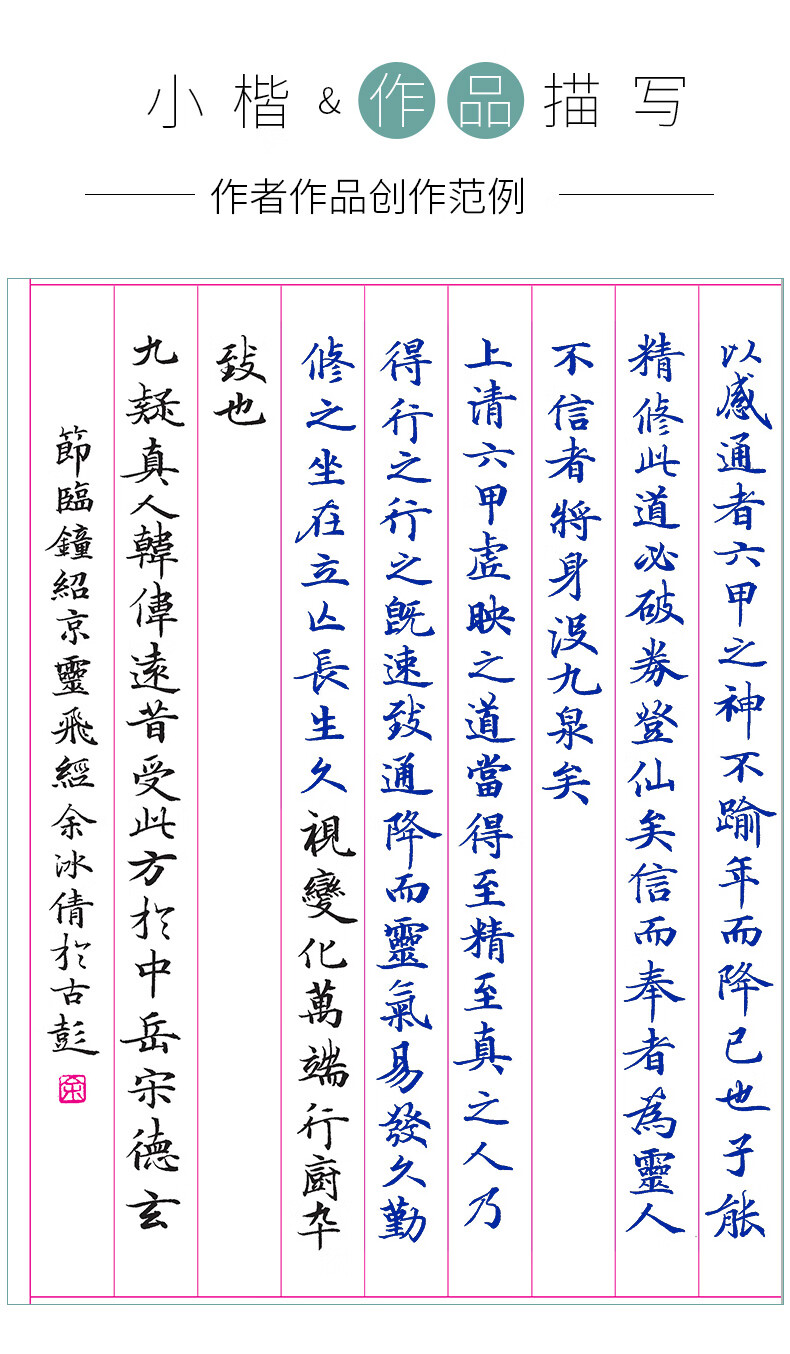 小楷&作品描写
作者作品创作范例
以感通者六甲之神不踰年而降已也子能
精修此道必破券登仙矣信而奉者為靈人
不信者將身没九泉矣
上清六甲虚映之道當得至精至真之人乃
得行之行之既速致通降而靈氣易發久勤
修之坐在立亾長生久視變化萬端行廚卒
致也
九疑真人韓偉遠昔受此方於中岳宋德玄
節臨鐘紹京靈飛經余冰倩於古彭
余